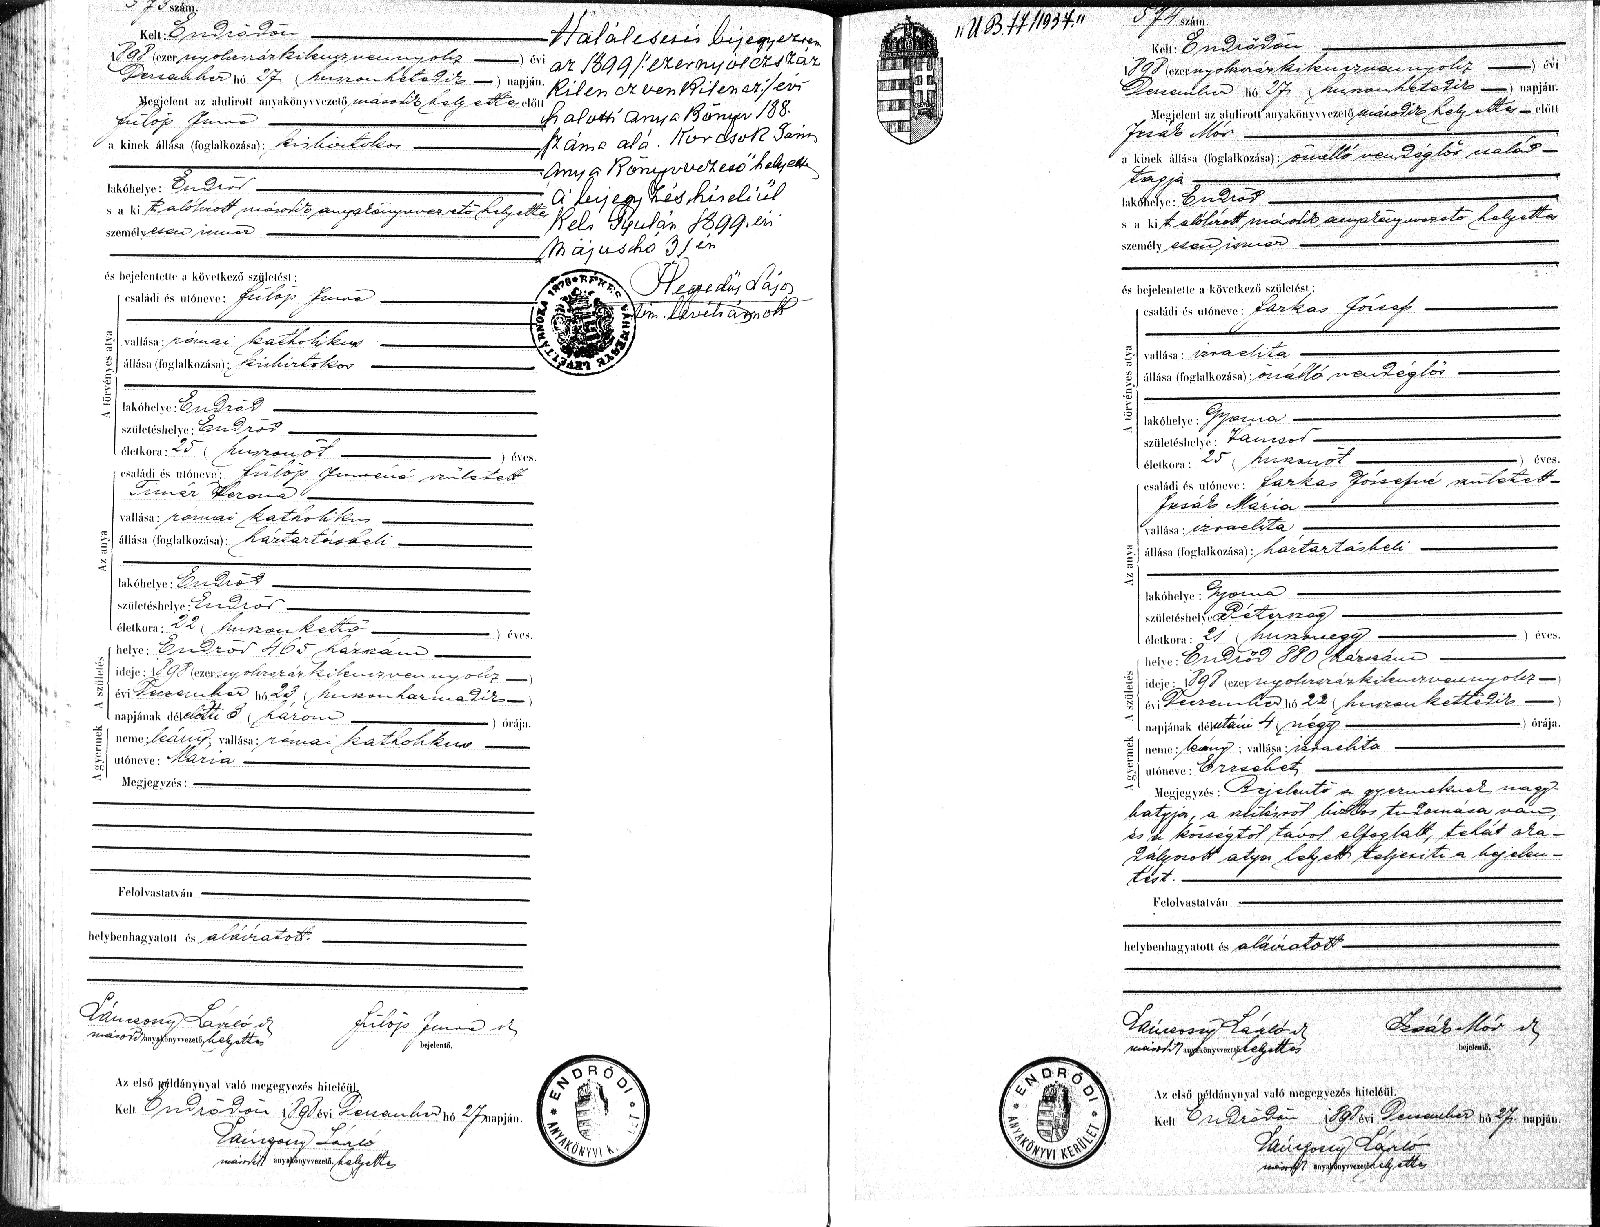 573 szám.
Kelt: Endrődön
1898 (ezernyolcszázkilenczvennyolcz) évi
December hó 27 (huszonhetedik) napján.
Megjelent az alulirott anyakönyvvezető második helyettes előtt
Fülöp Imre
a kinek állása (foglalkozása): kisbirtokos
lakóhelye: Endrőd
s a kit alólirott második anyakönyvvezető helyettes
személyesen ismer
és bejelentette a következő születést:
A törvényes atya
családi és utóneve: Fülöp Imre
vallása: római katholikus
állása (foglalkozása): kisbirtokos
lakóhelye: Endrőd
születéshelye: Endrőd
életkora: 25 (huszonöt) éves.
Az anya
családi és utóneve: Fülöp Imréné született
Timár Verona
vallása: római katholikus
állása (foglalkozása): háztartásbeli
lakóhelye: Endrőd
születéshelye: Endrőd
életkora: 22 (huszonkettő) éves.
A születés
helye: Endrőd 465 házszám
ideje: 1898 (ezernyolcszázkilenczvennyolcz)
évi December hó 23 (huszonharmadik)
napjának délelőtti 3 (három) órája.
A gyermek
neme: leány; vallása: római katholikus
utóneve: Mária
Megjegyzés:
Felolvastatván
helybenhagyatott és aláíratott.
Láncsony László sk
második anyakönyvvezető helyettes
Fülöp Imre sk
bejelentő.
Az első példánynyal való megegyezés hiteléül.
Kelt Endrődön 1898 évi December hó 27 napján.
Láncsony László
második anyakönyvvezető helyettes
ENDRŐDI ANYAKÖNYVI K.
Haláleseis bejegyezem
az 1899/ezernyolczszáz
kilenczvenkilencz/évi
halotti anya könyv 188.
száma alá. Korcsok
anya könyvvezető helyettes
A bejegyzés hiteléül
Kelt Gyulán 1899. évi
Május hó 31 én
Hegedűs Lajos
levéltárnok
1876 BÉKES VÁRMEGYE LEVÉLTÁRNOKA
"U B.17/1937."
574 szám.
Kelt: Endrődön
1898 (ezernyolcszázkilenczvennyolcz) évi
December hó 27 (huszonhetedik) napján.
Megjelent az alulirott anyakönyvvezető második helyettes előtt
Izsák Mór
a kinek állása (foglalkozása): önálló vendéglős család
tagja
lakóhelye: Endrőd
s a kit alólirott második anyakönyvvezető helyettes
személyesen ismer
és bejelentette a következő születést:
A törvényes atya
családi és utóneve: Farkas József
vallása: izraelita
állása (foglalkozása): önálló vendéglős
lakóhelye: Gyoma
születéshelye: Váncsod
életkora: 25 (huszonöt) éves.
Az anya
családi és utóneve: Farkas Józsefné született
Izsák Mária
vallása: izraelita
állása (foglalkozása): háztartásbeli
lakóhelye: Gyoma
születéshelye: Péterszeg
életkora: 21 (huszonegy) éves.
A születés
helye: Endrőd 880 házszám
ideje: 1898 (ezernyolcszázkilenczvennyolcz)
évi December hó 22 (huszonkettedik)
napjának délutáni 4 (négy) órája.
A gyermek
neme: leány; vallása: izraelita
utóneve: Erzsébet
Megjegyzés: Bejelentő a gyermeknek nagy-
batyja, a szülésről biztos tudomása van,
és a községtől távol elfoglalt, tehát aka-
dályozott atya helyett teljesiti a bejelen-
tést.
Felolvastatván
helybenhagyatott és aláíratott
Láncsony László sk
második anyakönyvvezető helyettes
Izsák Mór sk
bejelentő.
Az első példánynyal való megegyezés hiteléül.
Kelt Endrődön 1898 évi December hó 27 napján.
Láncsony László
második anyakönyvvezető helyettes
ENDRŐDI ANYAKÖNYVI KERÜLET